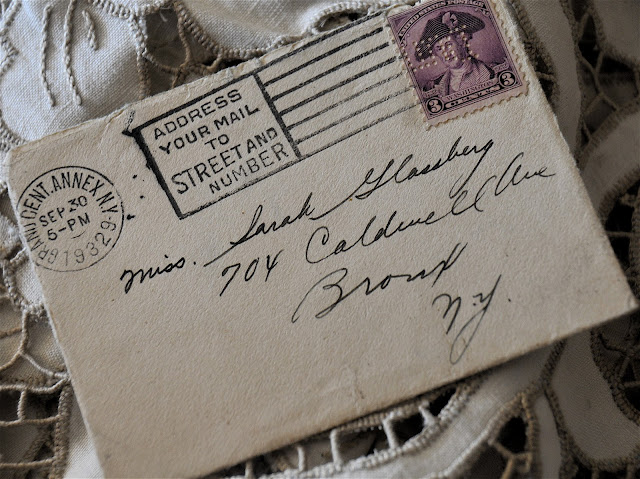 GRAND CENT. ANNEX, N.Y.
SEP 30
5-PM
1932 9
ADDRESS
YOUR MAIL
TO
STREET AND
NUMBER
STATES POSTAGE
3 CENTS 3
Miss. Sarah Glassberg
704 Caldwell Ave
Bronx
N.Y.